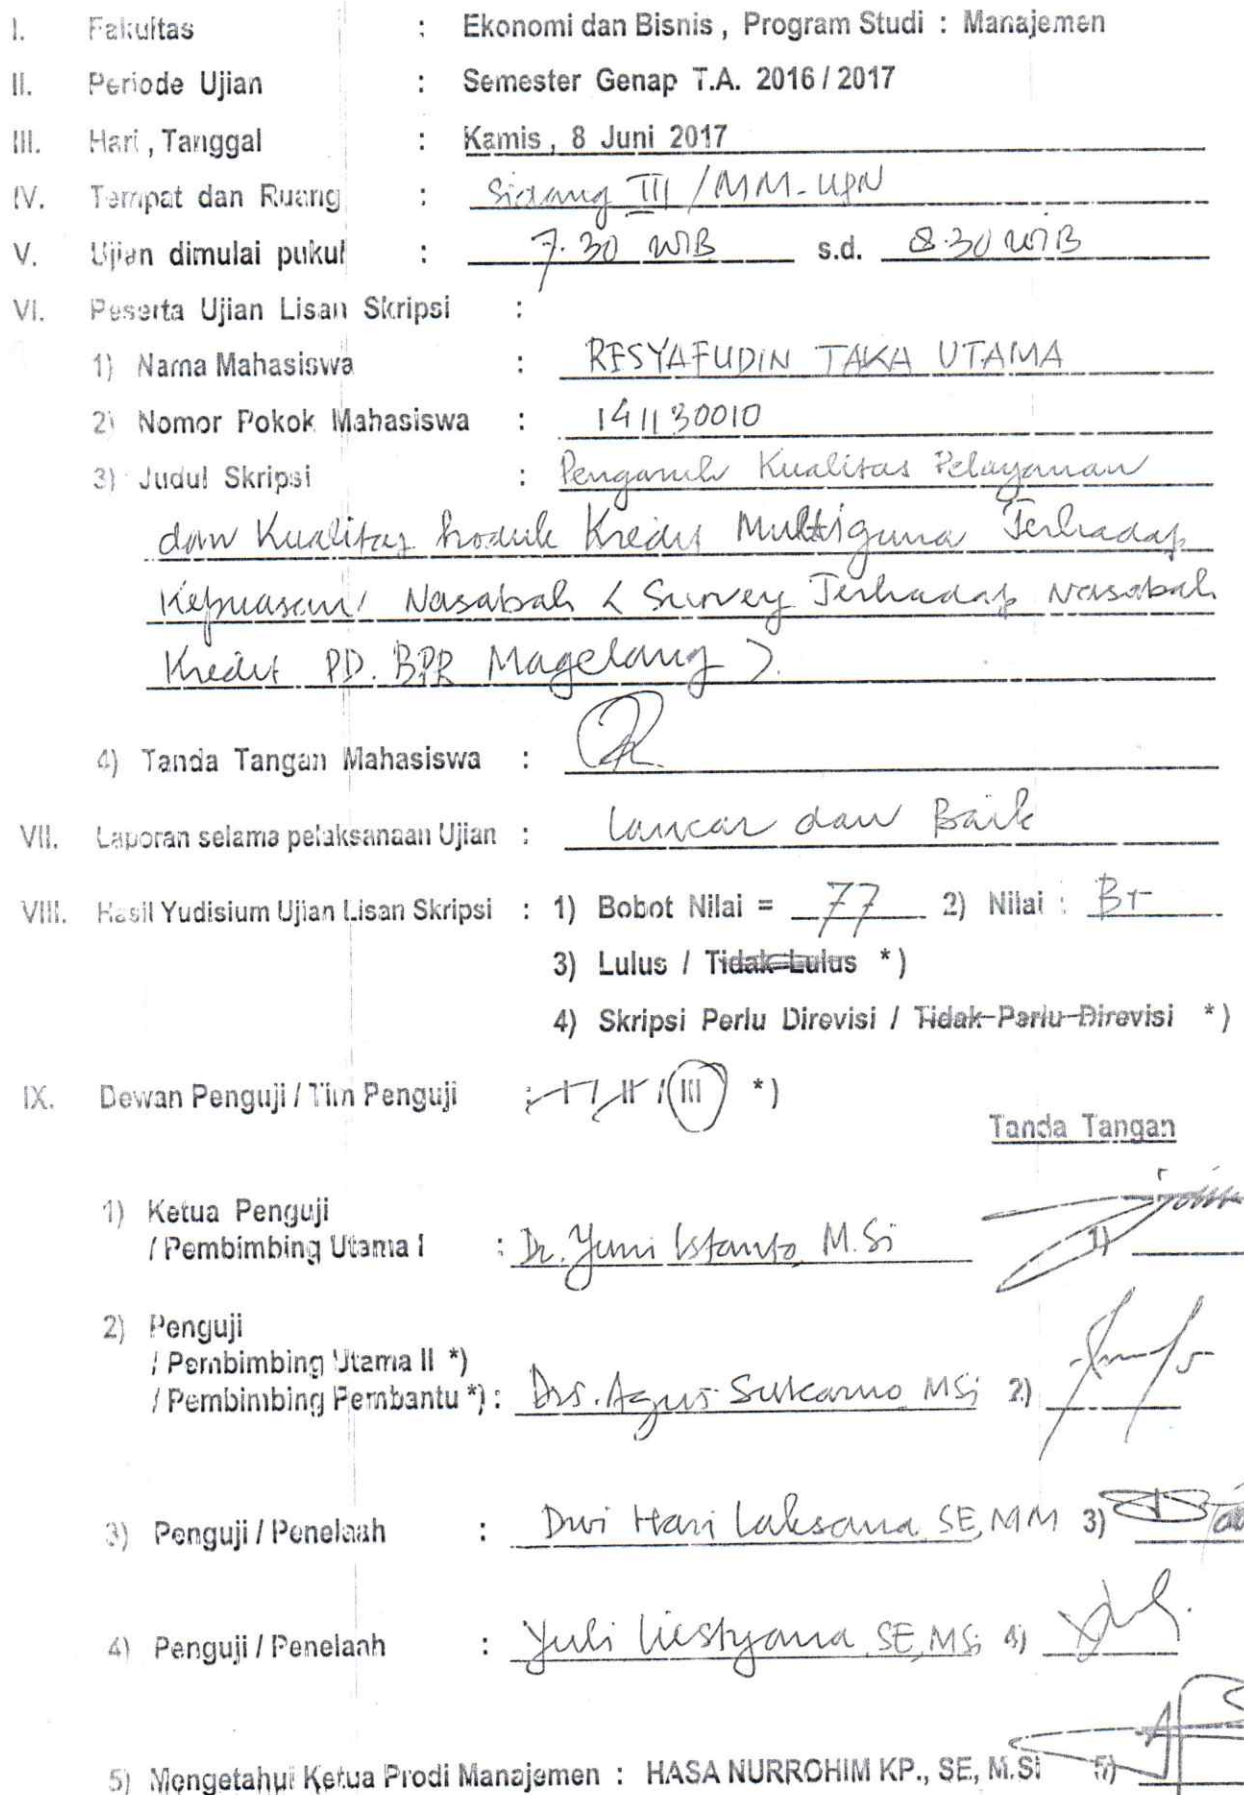 I. Fakultas : Ekonomi dan Bisnis , Program Studi : Manajemen
II. Periode Ujian : Semester Genap T.A. 2016 / 2017
III. Hari , Tanggal : Kamis , 8 Juni 2017
IV. Tempat dan Ruang : Sidang III / MM-UPN
V. Ujian dimulai pukul : 7.30 WIB s.d. 8.30 WIB
VI. Peserta Ujian Lisan Skripsi :
1) Nama Mahasiswa : RESYAFUDIN TAKA UTAMA
2) Nomor Pokok Mahasiswa : 141130010
3) Judul Skripsi : Pengaruh Kualitas Pelayanan
dan Kualitas Produk Kredit Multiguna Terhadap
Kepuasan Nasabah ( Survey Terhadap Nasabah
Kredit PD. BPR Magelang ).
4) Tanda Tangan Mahasiswa :
VII. Laporan selama pelaksanaan Ujian : Lancar dan Baik
VIII. Hasil Yudisium Ujian Lisan Skripsi : 1) Bobot Nilai = 77 2) Nilai : B+
3) Lulus / Tidak Lulus *)
4) Skripsi Perlu Direvisi / Tidak Perlu Direvisi *)
IX. Dewan Penguji / Tim Penguji : I / II / III *)
Tanda Tangan
1) Ketua Penguji
/ Pembimbing Utama I : Dr. Yuni Istanto, M.Si 1)
2) Penguji
/ Pembimbing Utama II *)
/ Pembimbing Pembantu *) : Drs. Agus Sukarno, MSi 2)
3) Penguji / Penelaah : Dwi Hari Laksana, SE, MM 3)
4) Penguji / Penelaah : Yuli Liestyana, SE, MSi 4)
5) Mengetahui Ketua Prodi Manajemen : HASA NURROHIM KP., SE, M.Si 5)